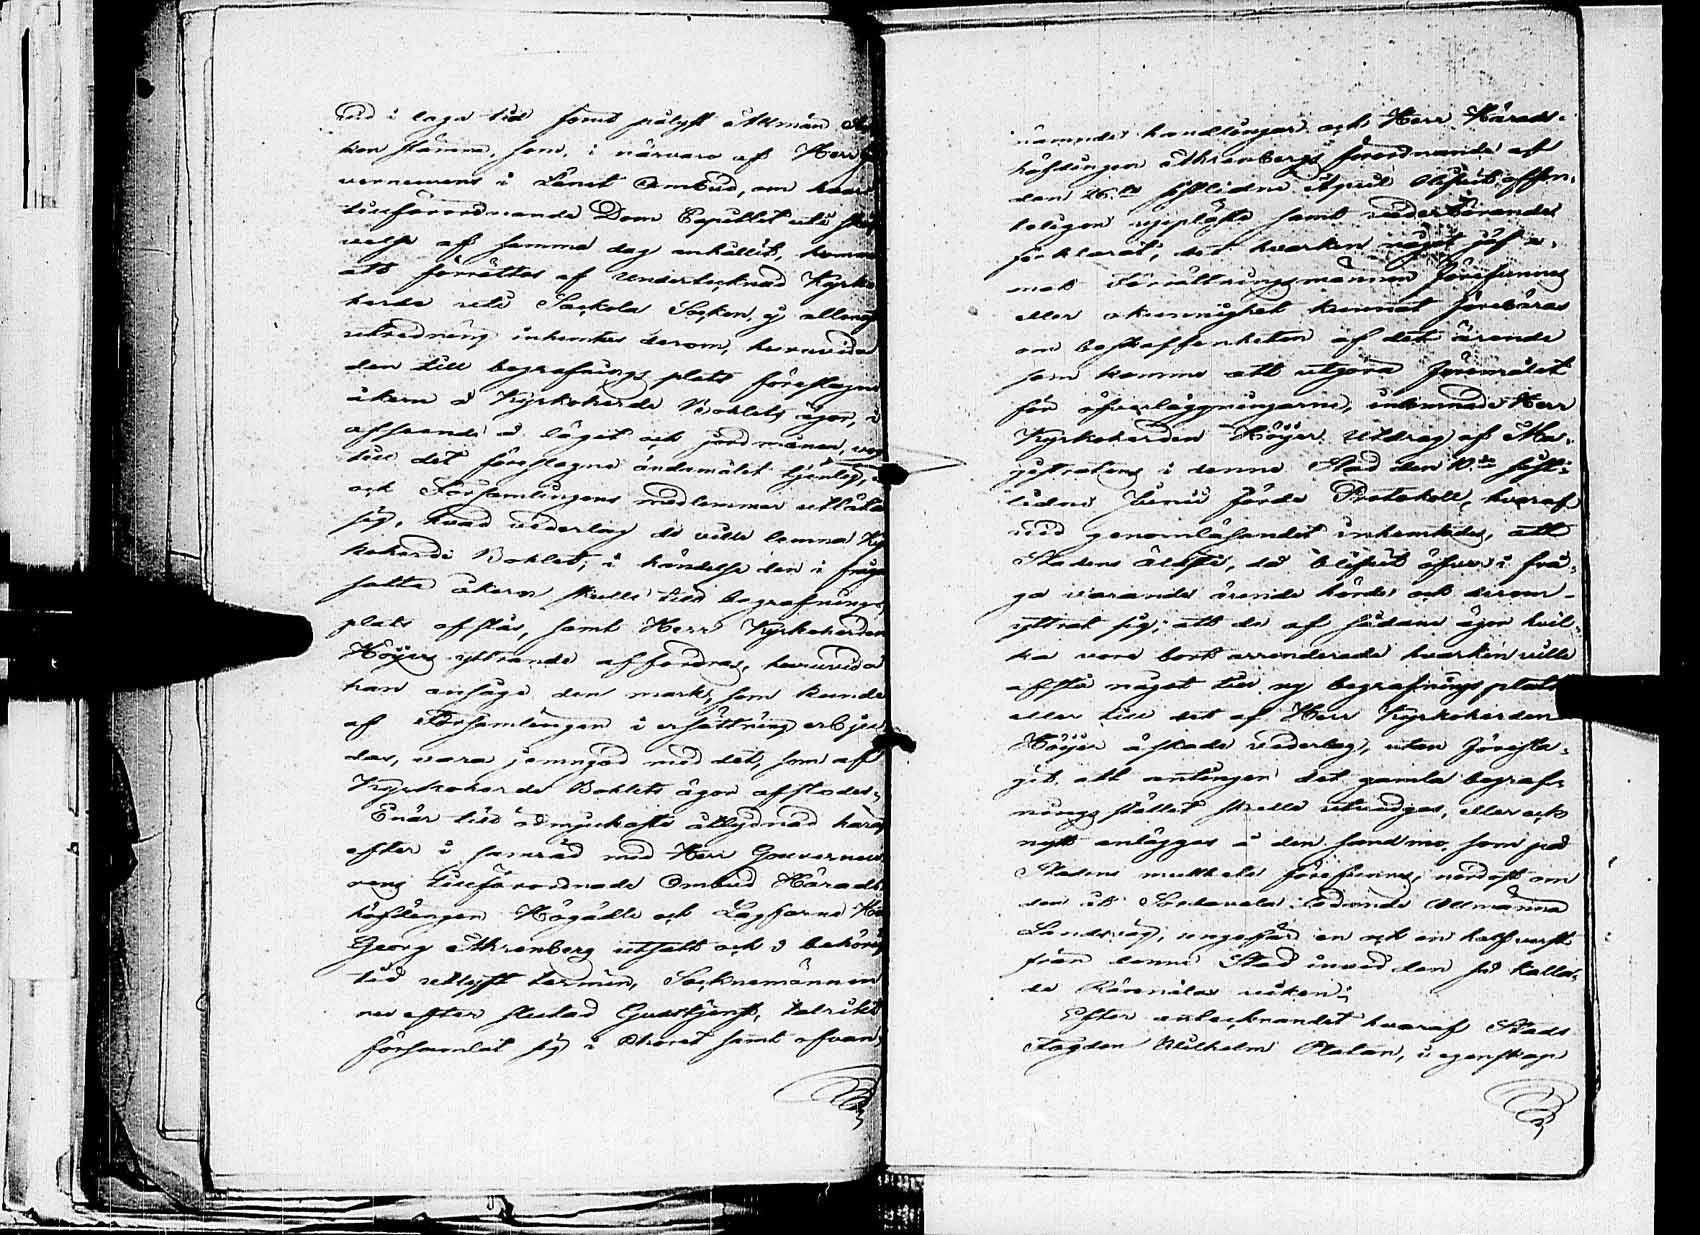 vid i laga tid samt pålyst Allmän Soc
ken stämma, som, i närvaro af Herr Gou
verneurens i Länet Ombud, om hvars
tillförordnande Dom Capitlet uti skrif
velse af samma dag anhållit, komme
att förrättas af undertecknad Kyrko
herde uti Sackola Socken, ej allenast
utredning inhemtas derom, huruvida
den till begrafnings plats föreslagne
åkern å Kyrkoherde Bohlets ägor, i
afseende å läget och jordmånen, vore
till det föreslagna ändamålet tjenlig,
och Församlingens medlemmar utlåta
sig, hvad vederlag de ville lemna Kyr
koherde Bohlet, i händelse den i fråga
satta åkern skulle till begrafnings
plats afstås, samt Herr Kyrkoherden
Höijers yttrande affordras, huruvida
han ansåge den mark, som kunde
af Församlingen i ersättning erbju
das, vara jemngod med det, som af
Kyrkoherde Bohlets ägor afstodes;
Enär till ödmjukaste åtlydnad häraf
efter i samråd med Herr Gouverneu
rens tillförordnade Ombud Härads
höfdingen Högädle och Lagfarne Herr
Georg Ahrenberg utsatt och i behörig
tid utlyst termin, Socknemännen
nu efter slutad Gudstjenst, talrikt
församlat sig i Choret samt ofvan
nämnde handlingar och Herr Härads-
höfdingen Ahrenbergs förordnande af
den 26:te sistlidne April blifvit offen-
teligen uppläste samt vederbörande
förklarat, det hvarken något jäf e-
mot Förrättningsmännen förefunnes
eller okunnighet kunnat förebäras
om beskaffenheten af det ärende
som komme att utgöra föremålet
för öfverläggningarne, inlemnade Herr
Kyrkoherden Höijer Utdrag af Ma-
gistratens i denne Stad den 10:de sist-
lidne Junii förde Protokoll, hvaraf
vid genomläsandet inhemtades, att
Stadens Äldste, då blifvit öfver i frå-
ga varande ärende hörde och derom
yttrat sig; att de af sådane ägor hvil-
ka vore bort arrenderade hvarken ville
afstå något till ny begrafnings plats
eller till det af Herr Kyrkoherden
Höijer äskade vederlag, utan föresla-
git, att antingen det gamla begraf-
nings stället skulle utvidgas, eller och
nytt anlägges å den sandmo, som på
Stadens mulbete förefinnes, nordost om
den åt Sordavala ledande Allmänna
Landsväg, ungefär en och en half verst
från denne Stad invid den så kalla-
de viken;
Efter antecknandet hvaraf Stads
Fogden Wilhelm Platan, i egenskap